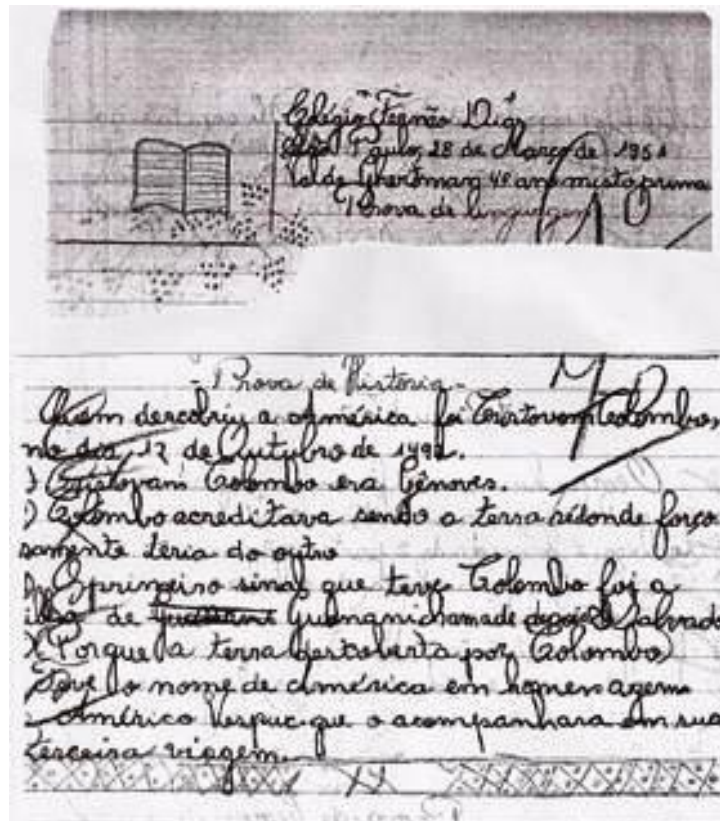 Colégio "Fernão Dias"
São Paulo, 28 de Março de 1951
4º ano misto prima
Prova de linguagem
- Prova de História -
Quem dercobriu a América foi Cristovam Colombo,
no dia, 12 de Outubro de 1492.
) Cristovam Colombo era Gênoves.
) Colombo acreditava sendo a terra redonde forço
samente teria do outro
O primeiro sinal que teve Colombo foi a
de Guanani chamade depois Salvado
Porque a terra descoberta por Colombo
Teve o nome de América em homenagem
Américo Vespuc que o acompanhara em sua
terceira viagem.